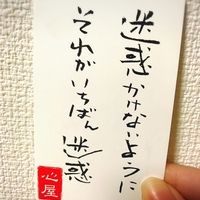 迷惑かけないように
それがいちばん迷惑
心屋